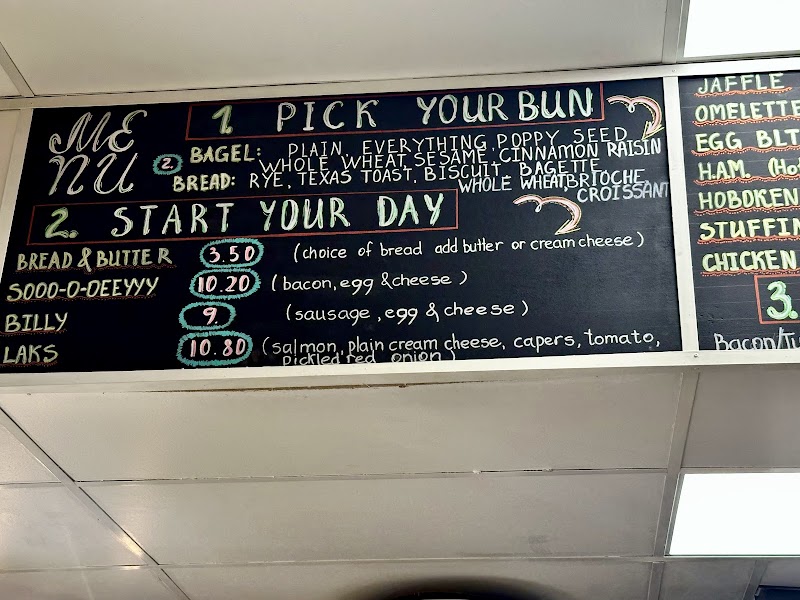 ME
NU
1. PICK YOUR BUN
2. BAGEL: PLAIN, EVERYTHING, POPPY SEED
WHOLE WHEAT, SESAME, CINNAMON RAISIN
BREAD: RYE, TEXAS TOAST, BISCUIT, BAGETTE
WHOLE WHEAT, BRIOCHE
CROISSANT
2. START YOUR DAY
BREAD & BUTTER 3.50 (choice of bread add butter or cream cheese)
SOOO-O-OEEYYY 10.20 (bacon, egg & cheese)
BILLY 9. (sausage, egg & cheese)
LAKS 10.80 (salmon, plain cream cheese, capers, tomato,
pickled red onion)
JAFFLE
OMELETTE
EGG BLT
H.A.M.
HOBOKEN
STUFFIN
CHICKEN
3.
Bacon/Tu